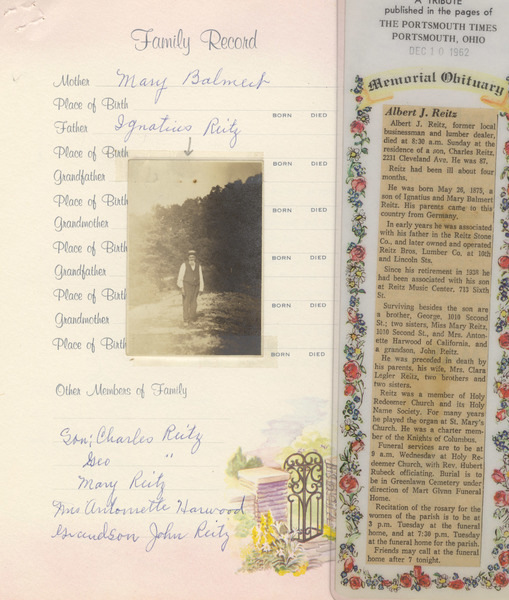 Family Record
Mother Mary Balmert
Place of Birth
BORN DIED
Father Ignatius Reitz
Place of Birth
BORN DIED
Grandfather
Place of Birth
BORN DIED
Grandmother
Place of Birth
BORN DIED
Grandfather
Place of Birth
BORN DIED
Grandmother
Place of Birth
BORN DIED
Other Members of Family
Son; Charles Reitz
Geo "
Mary Reitz
Mrs Antoinette Harwood
Grandson John Reitz
A TRIBUTE
published in the pages of
THE PORTSMOUTH TIMES
PORTSMOUTH, OHIO
DEC 10 1962
Memorial Obituary
Albert J. Reitz
Albert J. Reitz, former local
businessman and lumber dealer,
died at 8:30 a.m. Sunday at the
residence of a son, Charles Reitz,
2231 Cleveland Ave. He was 87.
Reitz had been ill about four
months.
He was born May 26, 1875, a
son of Ignatius and Mary Balmert
Reitz. His parents came to this
country from Germany.
In early years he was associated
with his father in the Reitz Stone
Co., and later owned and operated
Reitz Bros. Lumber Co. at 10th
and Lincoln Sts.
Since his retirement in 1938 he
had been associated with his son
at Reitz Music Center, 713 Sixth
St.
Surviving besides the son are
a brother, George, 1010 Second
St.; two sisters, Miss Mary Reitz,
1010 Second St., and Mrs. Antoin-
ette Harwood of California, and
a grandson, John Reitz.
He was preceded in death by
his parents, his wife, Mrs. Clara
Legler Reitz, two brothers and
two sisters.
Reitz was a member of Holy
Redeemer Church and its Holy
Name Society. For many years
he played the organ at St. Mary's
Church. He was a charter mem-
ber of the Knights of Columbus.
Funeral services are to be at
9 a.m. Wednesday at Holy Re-
deemer Church, with Rev. Hubert
Rubeck officiating. Burial is to
be in Greenlawn Cemetery under
direction of Mart Glynn Funeral
Home.
Recitation of the rosary for the
women of the parish is to be at
3 p.m. Tuesday at the funeral
home, and at 7:30 p.m. Tuesday
at the funeral home for the parish.
Friends may call at the funeral
home after 7 tonight.